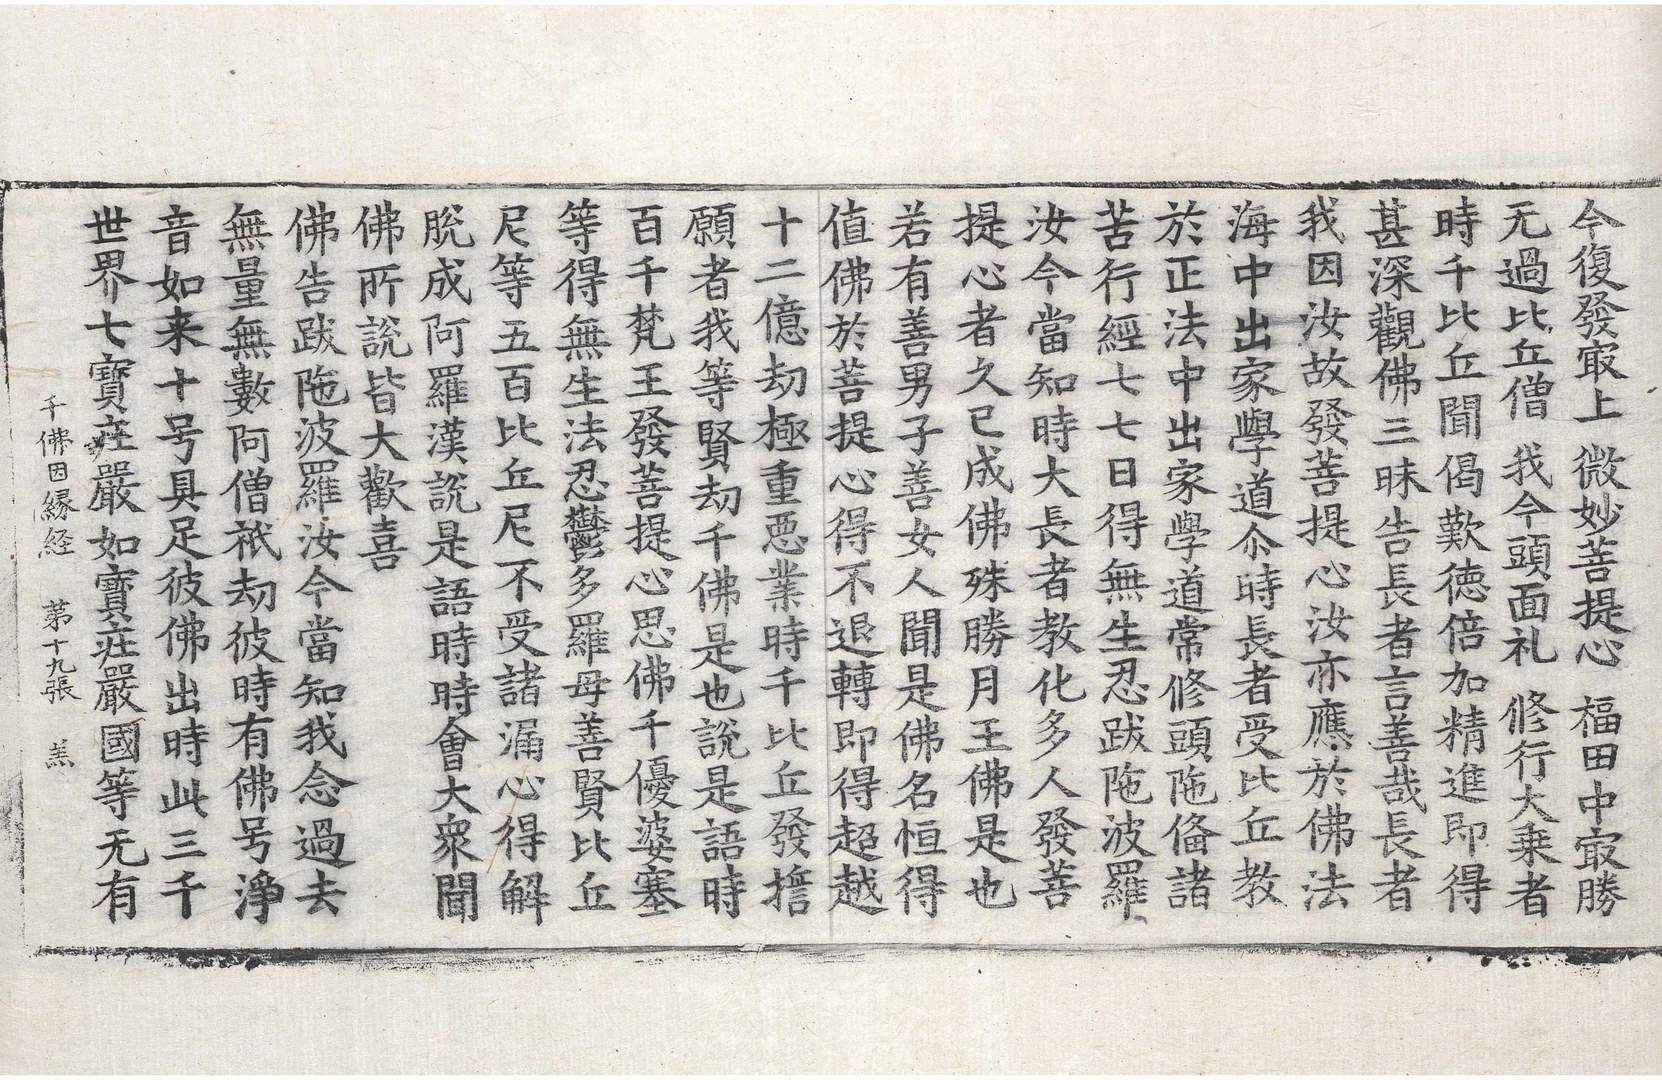 今復發冣上 微妙菩提心 福田中冣勝
无過比丘僧 我今頭面礼 修行大乗者
時千比丘聞偈歎徳倍加精進即得
甚深觀佛三昧告長者言善哉長者
我因汝故發菩提心汝亦應於佛法
海中出家學道尒時長者受比丘教
於正法中出家學道常修頭陁俻諸
苦行經七七日得無生忍跋陁波羅
汝今當知時大長者教化多人發菩
提心者久已成佛殊勝月王佛是也
若有善男子善女人聞是佛名恒得
值佛於菩提心得不退轉即得超越
十二億劫極重惡業時千比丘發擔
願者我等賢劫千佛是也說是語時
百千梵王發菩提心思佛千優婆塞
等得無生法忍鬱多羅母善賢比丘
尼等五百比丘尼不受諸漏心得解
脫成阿羅漢說是語時時會大衆聞
佛所說皆大歡喜
佛告跋陁波羅汝今當知我念過去
無量無數阿僧祇劫彼時有佛号淨
音如来十号具足彼佛出時此三千
世界七寶莊嚴如寶莊嚴國等无有
千佛因縁経 第十九張 羔